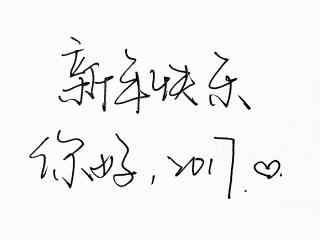 新年快乐
你好,2017.♡.